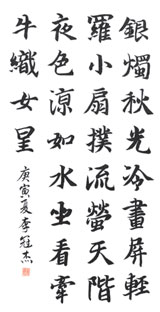 銀燭秋光冷畫屏輕
羅小扇撲流螢天階
夜色涼如水坐看牽
牛織女星
庚寅夏李冠杰